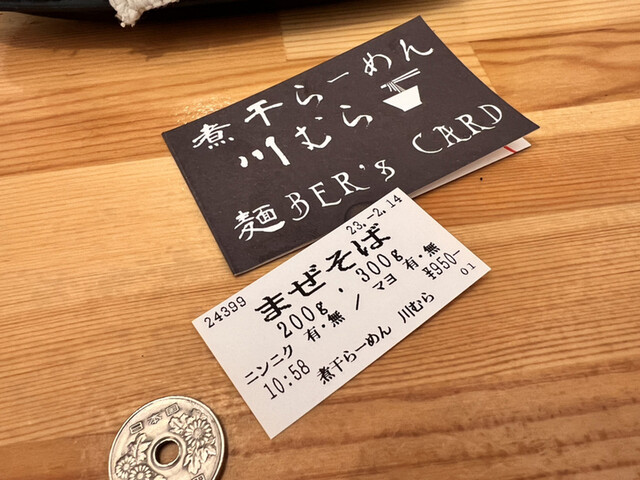 煮干らーめん
川むら
麺BER's CARD
23.-2.14
24399
まぜそば
200g・300g
ニンニク 有・無 / マヨ 有・無
¥950-
10:58
煮干らーめん 川むら
01
日本国